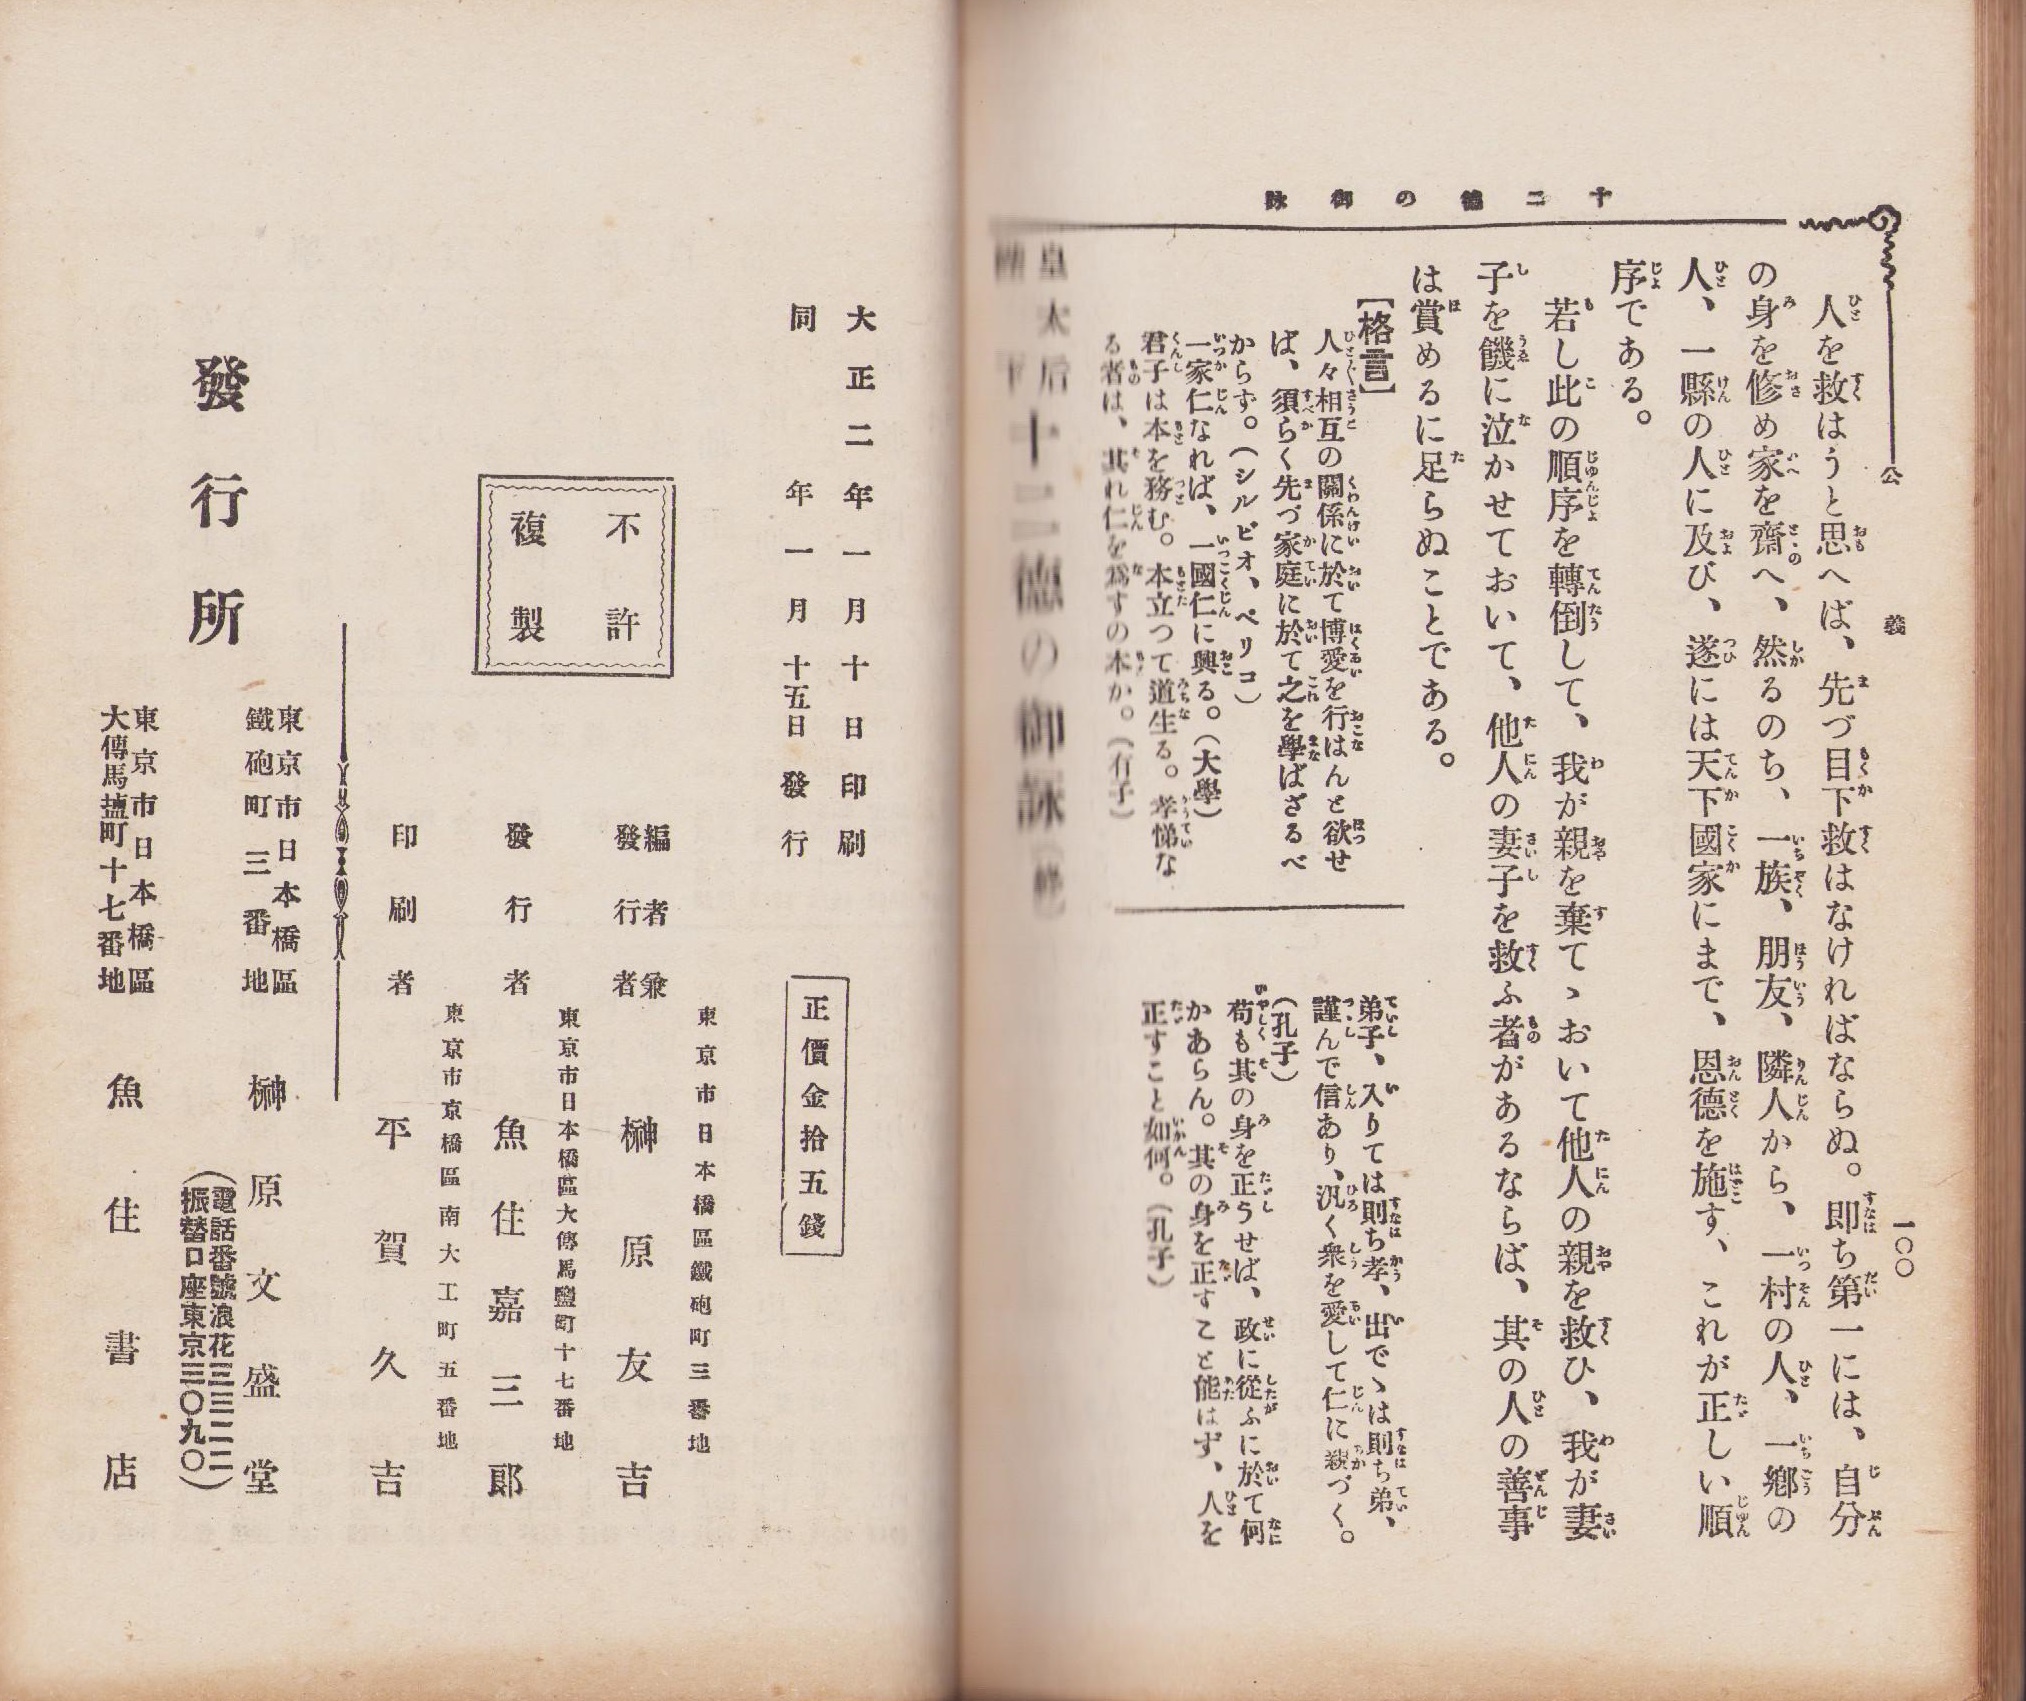 十二德の御詠
公義
一〇〇
人を救はうと思へば、先づ目下救はなければならぬ。即ち第一には、自分
の身を修め家を齋へ、然るのち、一族、朋友、隣人から、一村の人、一鄕の
人、一縣の人に及び、遂には天下國家にまで、恩德を施す、これが正しい順
序である。
若し此の順序を轉倒して、我が親を棄てゝおいて他人の親を救ひ、我が妻
子を饑に泣かせておいて、他人の妻子を救ふ者があるならば、其の人の善事
は賞めるに足らぬことである。
【格言】
人々相互の關係に於て博愛を行はんと欲せ
ば、須らく先づ家庭に於て之を學ばざるべ
からず。（シルビオ、ペリコ）
一家仁なれば、一國仁に興る。（大學）
君子は本を務む。本立つて道生る。孝悌な
る者は、其れ仁を爲すの本か。（有子）
弟子、入りては則ち孝、出でゝは則ち弟、
謹んで信あり、汎く衆を愛して仁に親づく。
（孔子）
苟も其の身を正うせば、政に從ふに於て何
かあらん。其の身を正すこと能はず、人を
正すこと如何。（孔子）
皇太后
陛下
十二德の御詠
大正二年一月十日印刷
同年一月十五日發行
正價金拾五錢
不許
複製
東京市日本橋區鐵砲町三番地
編者兼
發行者
榊原友吉
東京市日本橋區大傳馬鹽町十七番地
發行者
魚住嘉三郎
東京市京橋區南大工町五番地
印刷者
平賀久吉
發行所
東京市日本橋區
鐵砲町三番地
榊原文盛堂
（電話番號浪花三三二二
振替口座東京三〇九〇）
東京市日本橋區
大傳馬鹽町十七番地
魚住書店